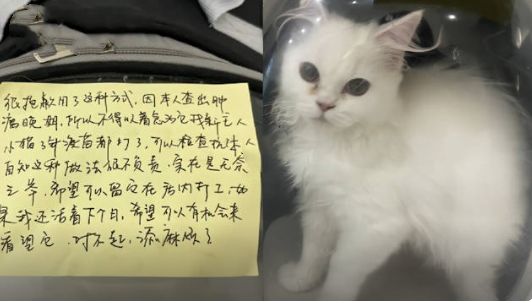 很抱歉用了这种方式,因本人查出肿
瘤晚期,所以不得以着急为它找新主人
小猫3针疫苗都打了,可以检查抗体,本人
自知这种做法很不负责,实在是无奈
之举,希望可以留它在店内打工,如
果我还活着下个月,希望可以有机会来
看望它,对不起,添麻烦了